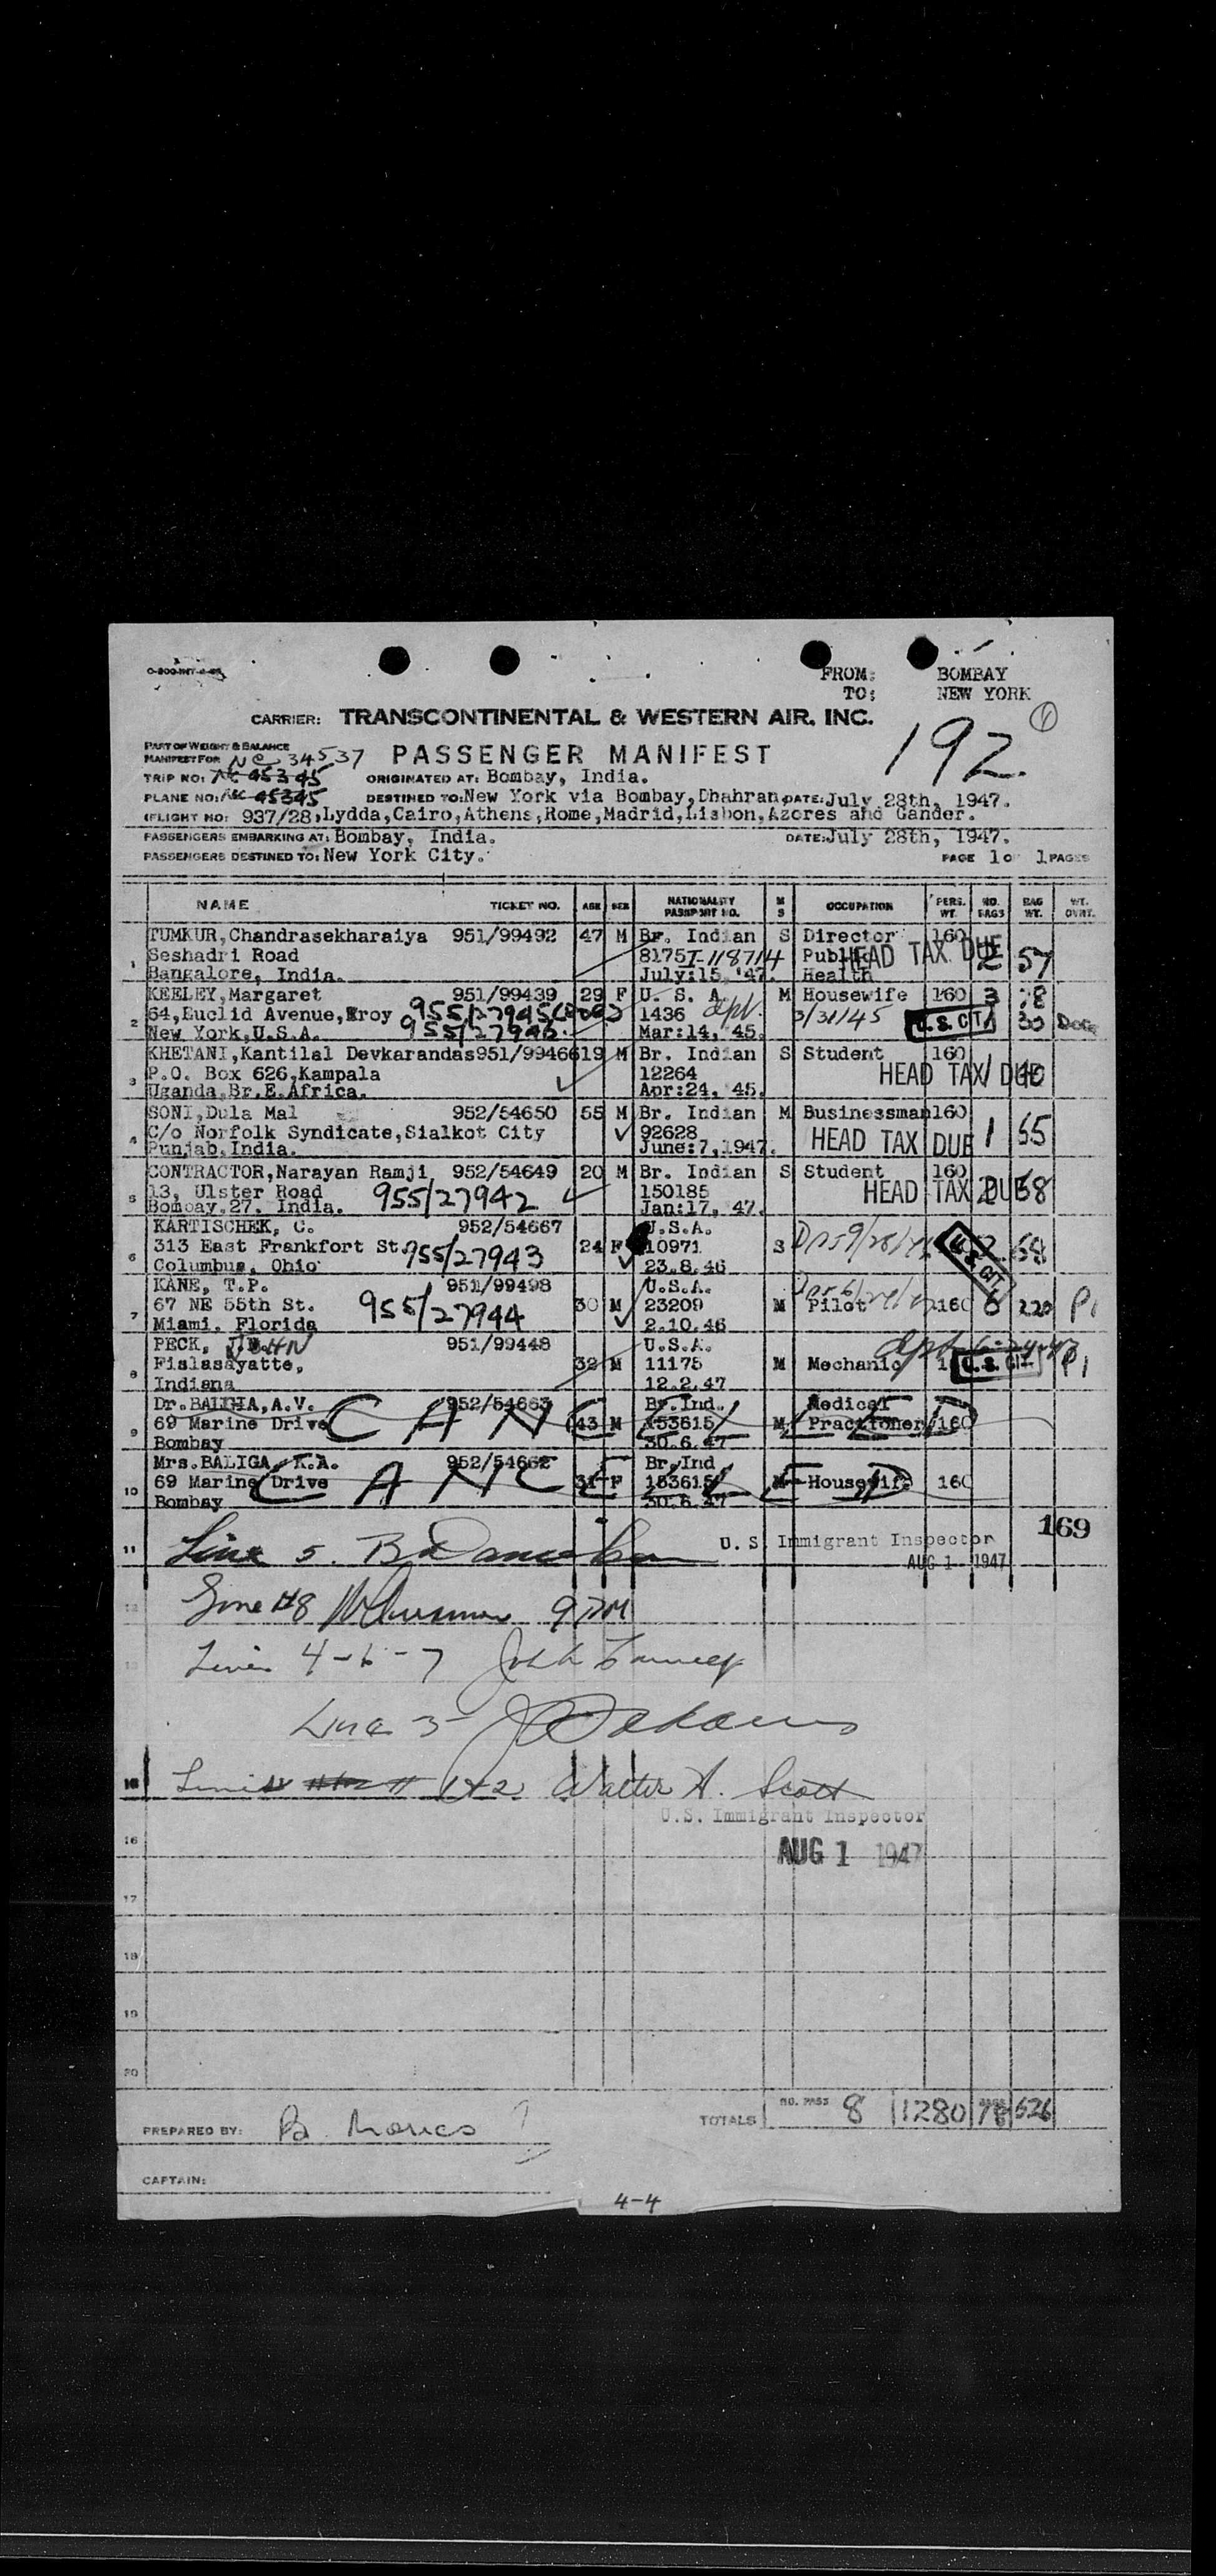 FROM: BOMBAY
TO: NEW YORK
CARRIER: TRANSCONTINENTAL & WESTERN AIR, INC.
192. 1
PART OF WEIGHT & BALANCE
MANIFEST FOR NC 34537
PASSENGER MANIFEST
TRIP NO: NC 45345 ORIGINATED AT: Bombay, India.
PLANE NO: NC 45345 DESTINED TO: New York via Bombay,Dhahran, DATE: July 28th, 1947.
(FLIGHT NO: 937/28, Lydda,Cairo,Athens,Rome,Madrid,Lisbon,Azores and Gander.
PASSENGERS EMBARKING AT: Bombay, India. DATE: July 28th, 1947.
PASSENGERS DESTINED TO: New York City. PAGE 1 of 1 PAGES
NAME TICKET NO. AGE SEX NATIONALITY PASSPORT NO. M S OCCUPATION PERS. WT. NO. BAGS BAG WT. WT. OVHT.
TUMKUR,Chandrasekharaiya 951/99492 47 M Br. Indian S Director 160
1 Seshadri Road 8175 I-118714 Public HEAD TAX DUE 2 57
Bangalore, India. July:15, '47. Health
KEELEY,Margaret 951/99439 29 F U. S. A. M Housewife 160 3 :8
2 64,Euclid Avenue,Eroy 955/27945 1436 dpt. 3/31/45 U.S. CIT. 30
New York,U.S.A. 955/27946. Mar:14, '45.
KHETANI,Kantilal Devkarandas 951/99466 19 M Br. Indian S Student 160
3 P.O. Box 626,Kampala 12264 HEAD TAX DUE 1 40
Uganda,Br.E.Africa. Apr:24, 45.
SONI,Dula Mal 952/54650 55 M Br. Indian M Businessman 160
4 C/o Norfolk Syndicate,Sialkot City 92628 HEAD TAX DUE 1 65
Punjab,India. June:7,1947.
CONTRACTOR,Narayan Ramji 952/54649 20 M Br. Indian S Student 160
5 13, Ulster Road 955/27942 150185 HEAD TAX DUE 2 68
Bombay.27. India. Jan:17, 47.
KARTISCHEK, C. 952/54667 U.S.A.
6 313 East Frankfort St. 955/27943 24 F 10971 S U.S. CIT. 2 68
Columbus, Ohio 23.8.46
KANE, T.P. 951/99498 U.S.A.
7 67 NE 55th St. 955/27944 30 M 23209 M Pilot 160 6 220 P1
Miami, Florida 2.10.46
PECK, JOHN 951/99448 U.S.A.
8 Fislasayatte, 32 M 11175 M Mechanic U.S. CIT. P1
Indiana 12.2.47
Dr.BALIHA,A.V. 952/54663 Br.Ind. Medical
9 69 Marine Drive CANCELLED 43 M 153615 M Practioner 160
Bombay 30.6.47
Mrs.BALIGA, K.A. 952/54662 Br.Ind
10 69 Marine Drive CANCELLED 31 F 153615 M Housewife 160
Bombay 30.6.47
169
11 Line 5. U. S. Immigrant Inspector
AUG 1 1947
Line #8 9 PM
Lines 4-6-7 John
Line 3
15 Lines 1 & 2 Walter A. Scott
U.S. Immigrant Inspector
16 AUG 1 1947
17
18
19
20
TOTALS NO. PASS 8 1280 18 526
PREPARED BY:
CAPTAIN:
4-4